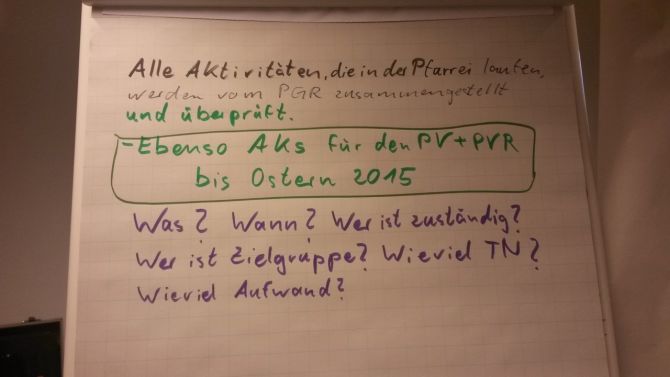 Alle Aktivitäten, die in der Pfarrei laufen,
werden vom PGR zusammengestellt
und überprüft.
- Ebenso AKs für den PV + PVR
bis Ostern 2015
Was? Wann? Wer ist zuständig?
Wer ist Zielgruppe? Wieviel TN?
Wieviel Aufwand?